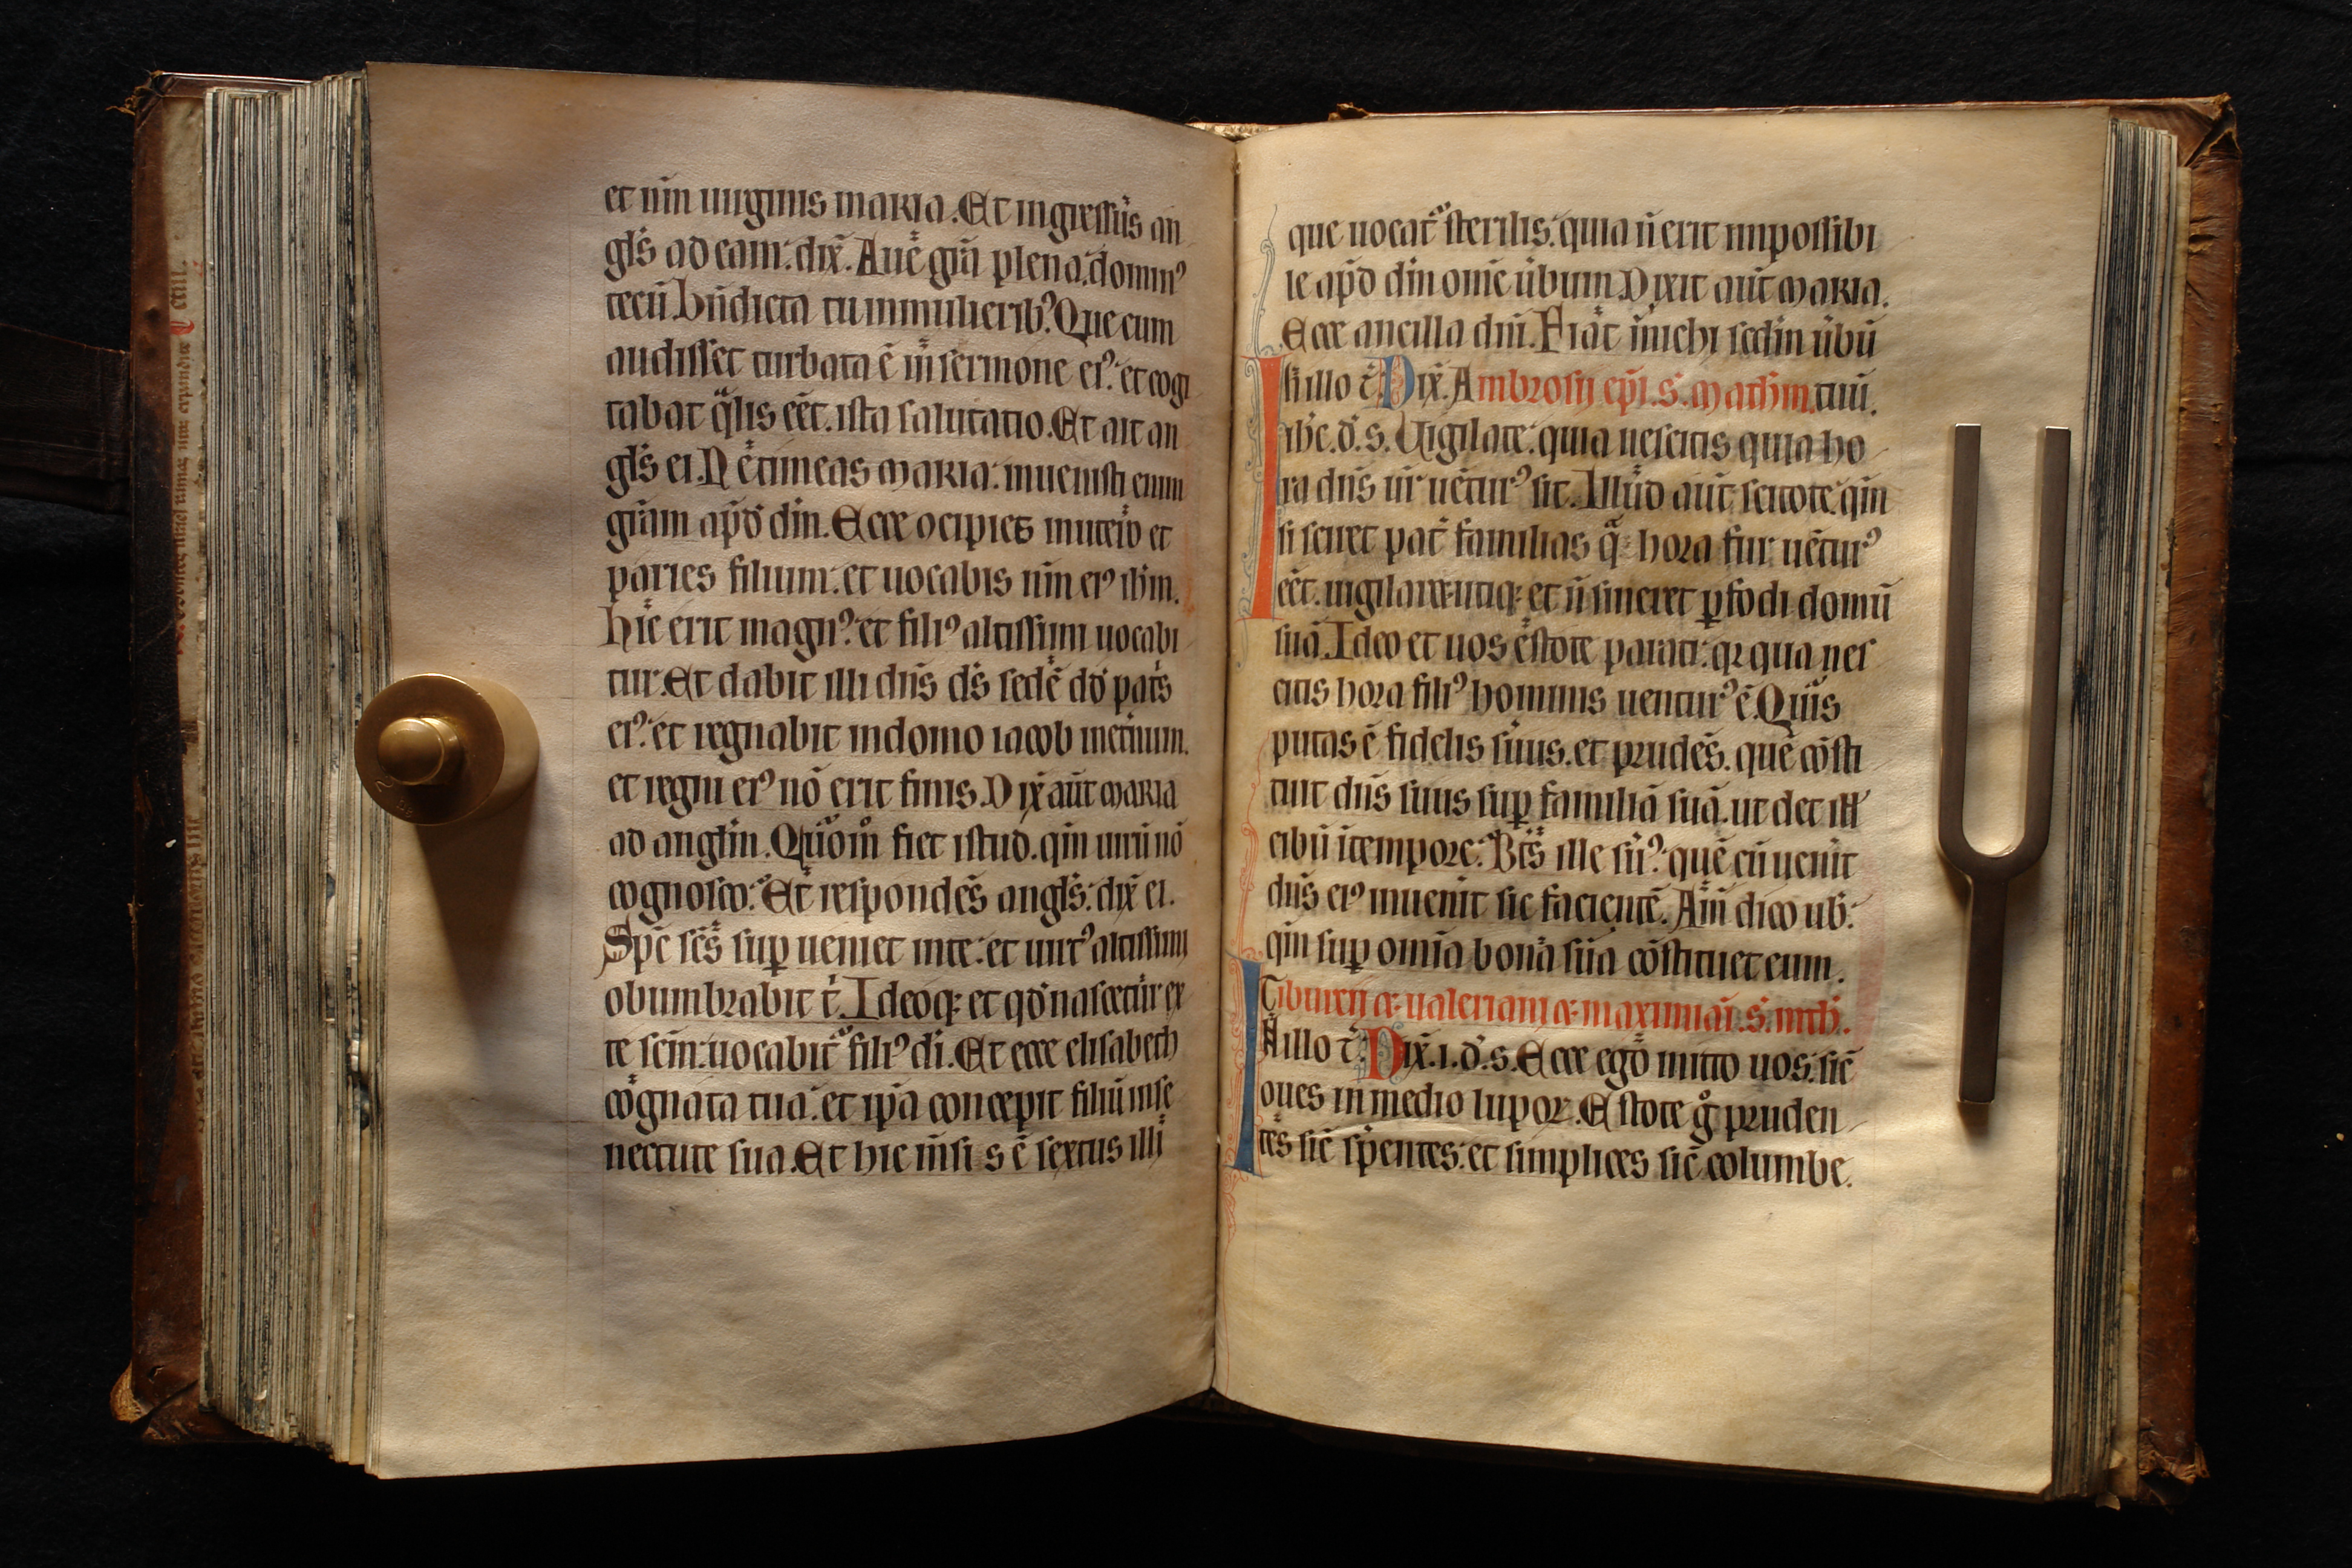 et nm̄ uirginis maria. Et ingressus an
gl̄s ad eam: dix̄. Aue gr̄a plena: domin⁹
tecū bn̄dicta tu in mulierib⁹. Que cum
audisset turbata ē in sermone ei⁹: et cogi
tabat q̄lis eēt. ista salutatio. Et ait an
gl̄s ei. Ne timeas maria: inuenisti enim
gr̄am apd̄ dm̄. Ecce (con)cipies in utero et
paries filium: et uocabis nm̄ ei⁹ ih̄m.
hic erit magn⁹: et fili⁹ altissimi uocabi
tur. Et dabit illi dn̄s ds̄ sedē dd̄ pat̄s
ei⁹: et regnabit in domo iacob inet̄num.
et regni ei⁹ nō erit finis. Dix̄ aūt maria
ad angl̄m. Quōm° fiet istud. qm̄ uirū nō
cognosco: Et respondēs angl̄s: dix̄ ei.
Spc̄ sc̄s sup̱ ueniet in te: et uirt⁹ altissimi
obumbrabit t̄. Ideoq; et qd̄ nascetur ex
te sc̄m: uocabit̄ fili⁹ di̅. Et ecce elisabeth
cognata tua: et ip̄a concepit filiū in se
nectute sua. Et hic m̄sis ē sextus illi
que uocat̄ sterilis: quia n̄ erit impossibi
le apd̄ dm̄ om̄e ūbum. Dixit aūt maria.
Ecce ancilla dn̄i. Fiat michi scd̄m ūbū
In illo t̄. Dix̄. Ambrosij ep̄i. S. Mathm̄. tuū.
ih̄c. d. s. Uigilate: quia nescitis qua ho
ra dn̄s ur̄ uētur⁹ sit. Illud aūt scitote: qm̄
si sciret pat̄ familias q̄ hora fur uētur⁹
eēt. uigilaret utiq; et n̄ sineret p̱fodi domū
suā. Ideo et uos estote parati: q2 qua nes
citis hora fili⁹ hominis uentur⁹ ē. Quis
putas ē fidelis s̄uus. et prudēs. quē cōsti
tuit dn̄s suus sup̱ familiā suā. ut det ill
cibū ī tempore: Bt̄s ille s̄u⁹: quē cū uenit
dn̄s ei⁹ inuenit sic facientē. Am̄ dico ub̄:
qm̄ sup̱ om̄ia bona sua cōstituet eum.
Tiburcij (et) ualeriani (et) maximiai. S. mth̄.
In illo t̄. Dix̄. i. d. s. Ecce ego mitto uos: sic̄
oues in medio lupoꝝ. Estote g° pruden
tēs sic̄ sp̄entes: et simplices sic̄ columbe.